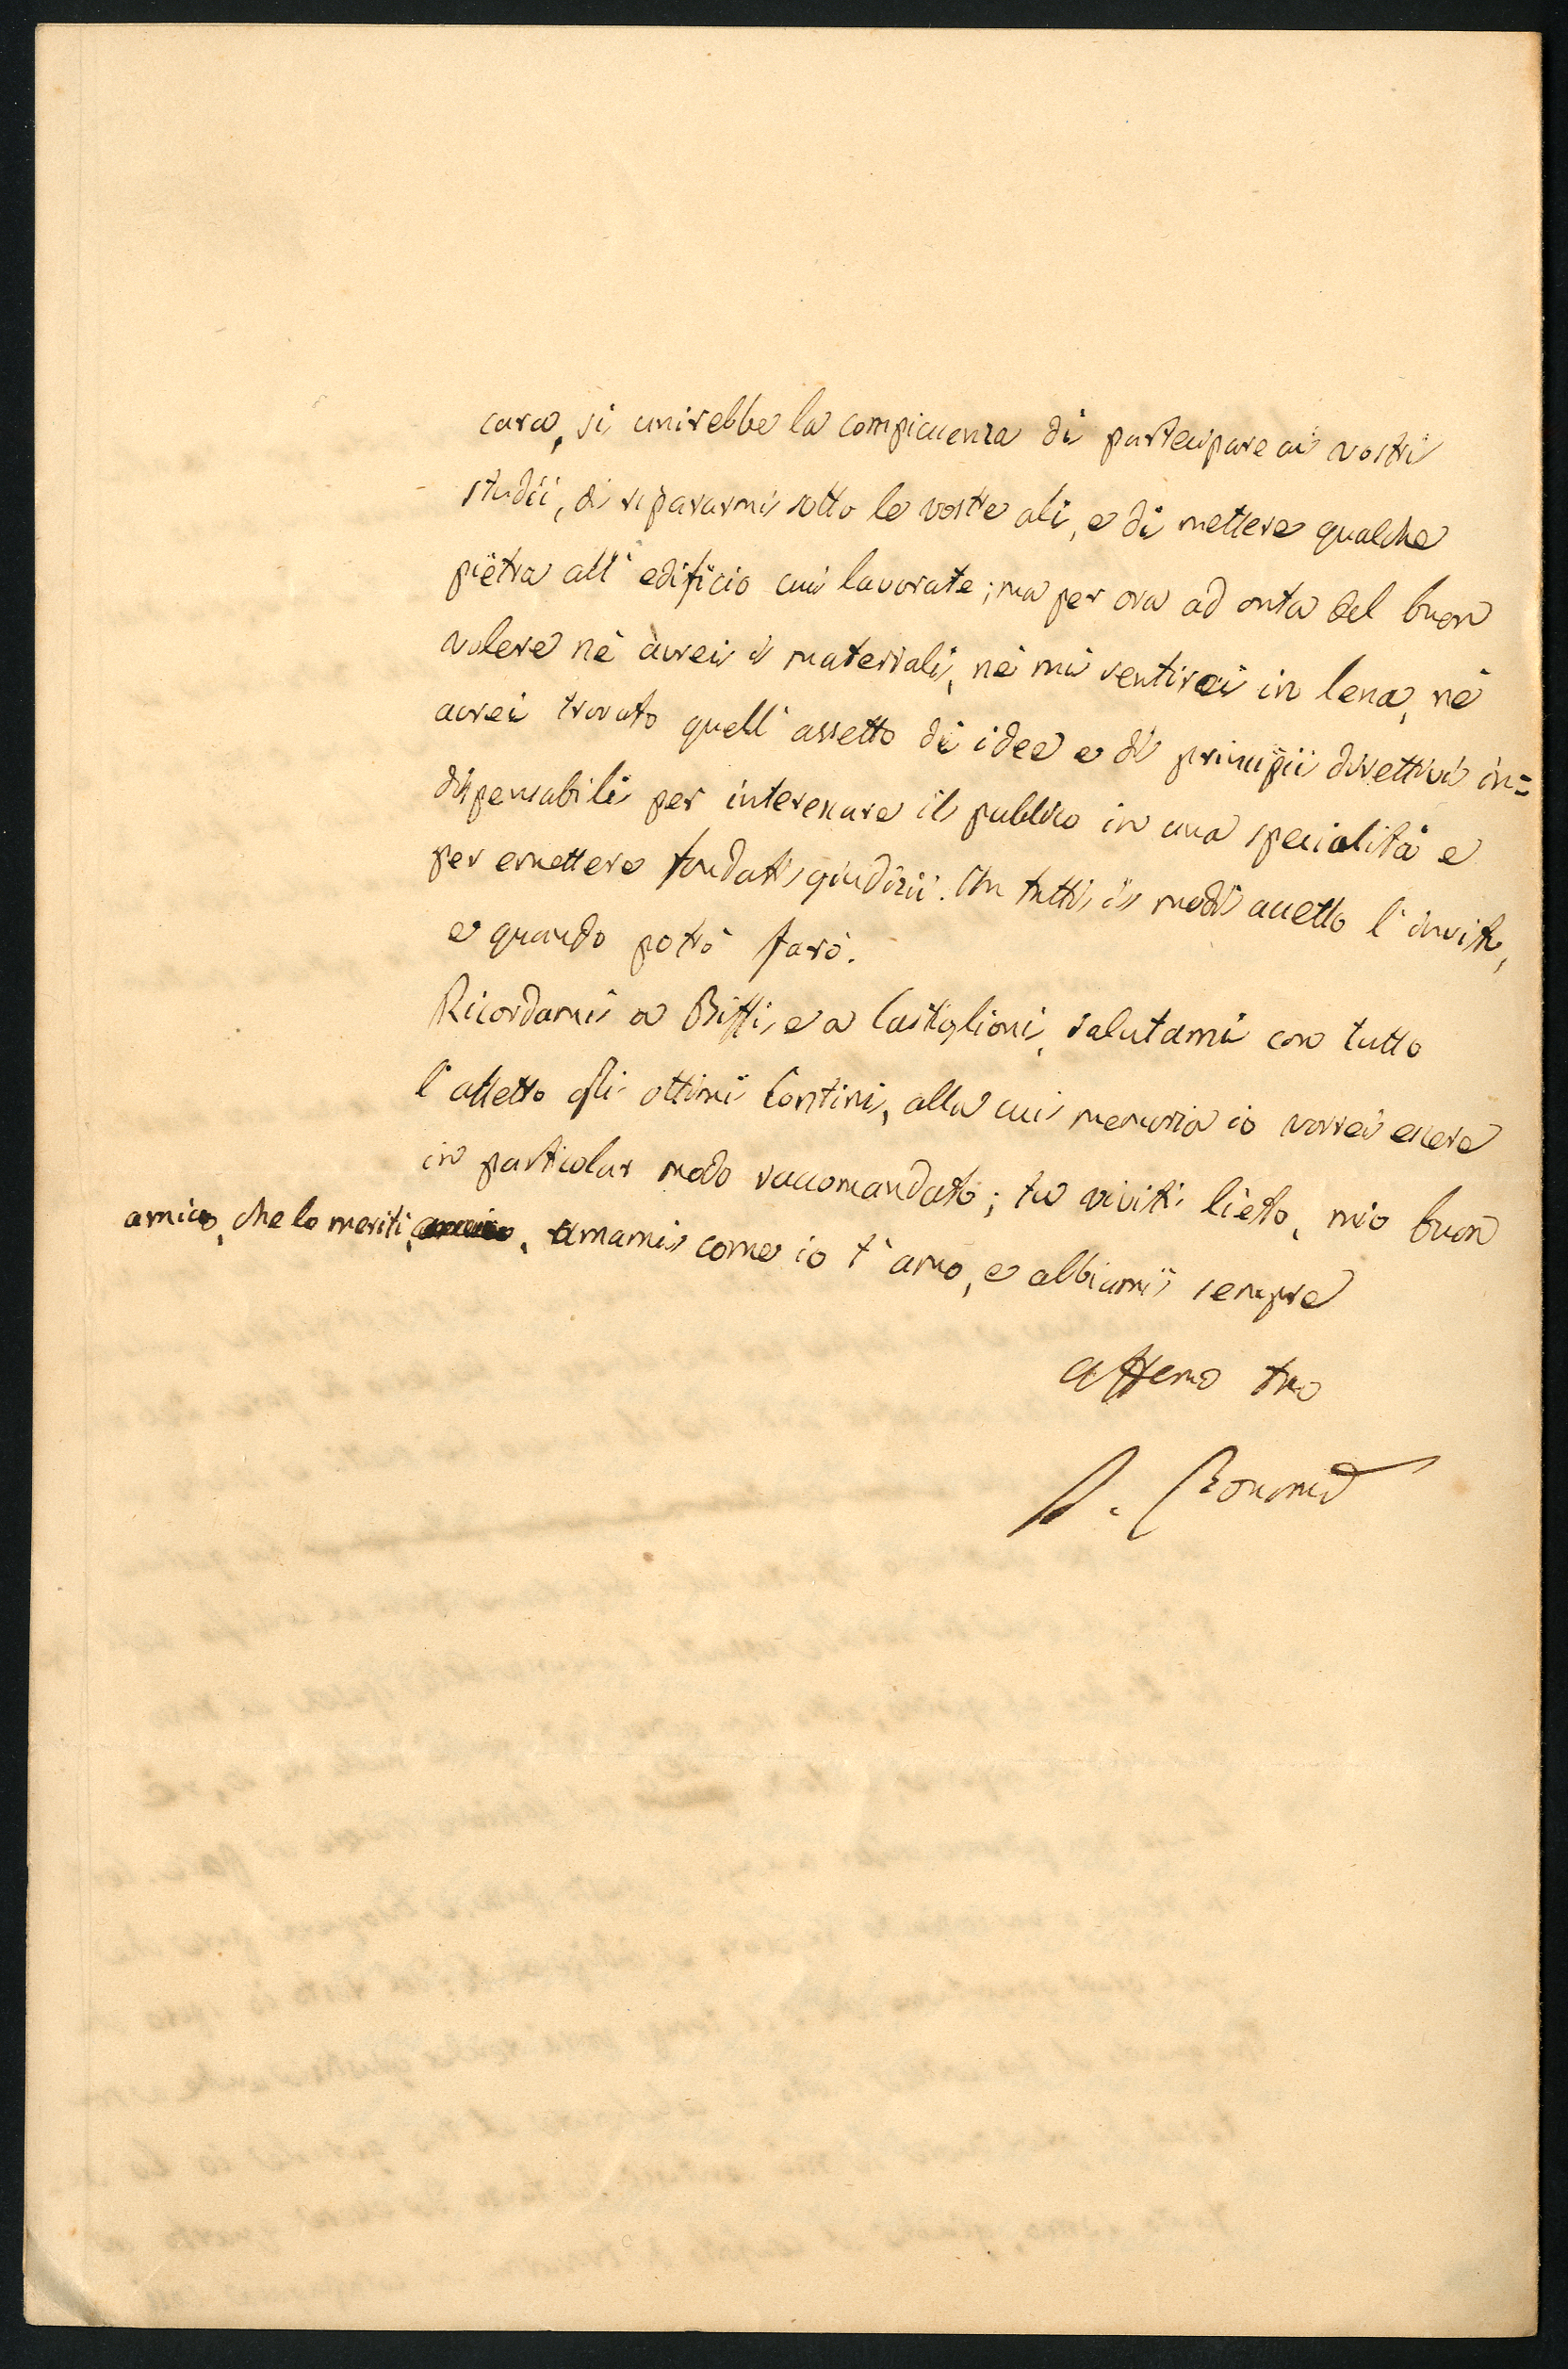 cara, si unirebbe la compiacenza di partecipare ai vostri
studii, di ripararmi sotto le vostre ali, e di mettere qualche
pietra all'edificio cui lavorate; ma per ora ad onta del buon
volere nè avrei i materiali, nè mi sentirei in lena, nè
avrei trovato quell'assetto di idee e di principii direttivi in=
dispensabili per interessare il pubblico in una specialità e
per emettere fondati giudizii. In tutti i modi accetto l'invito,
e quando potrò farò.
Ricordami a Biffi, e a Castiglioni, salutami con tutto
l'affetto gli ottimi Contini, alla cui memoria io vorrei essere
in particolar modo raccomandato; tu viviti lieto, mio buon
amico, che lo meriti, amami come io t'amo, e abbiami sempre
affemo tuo